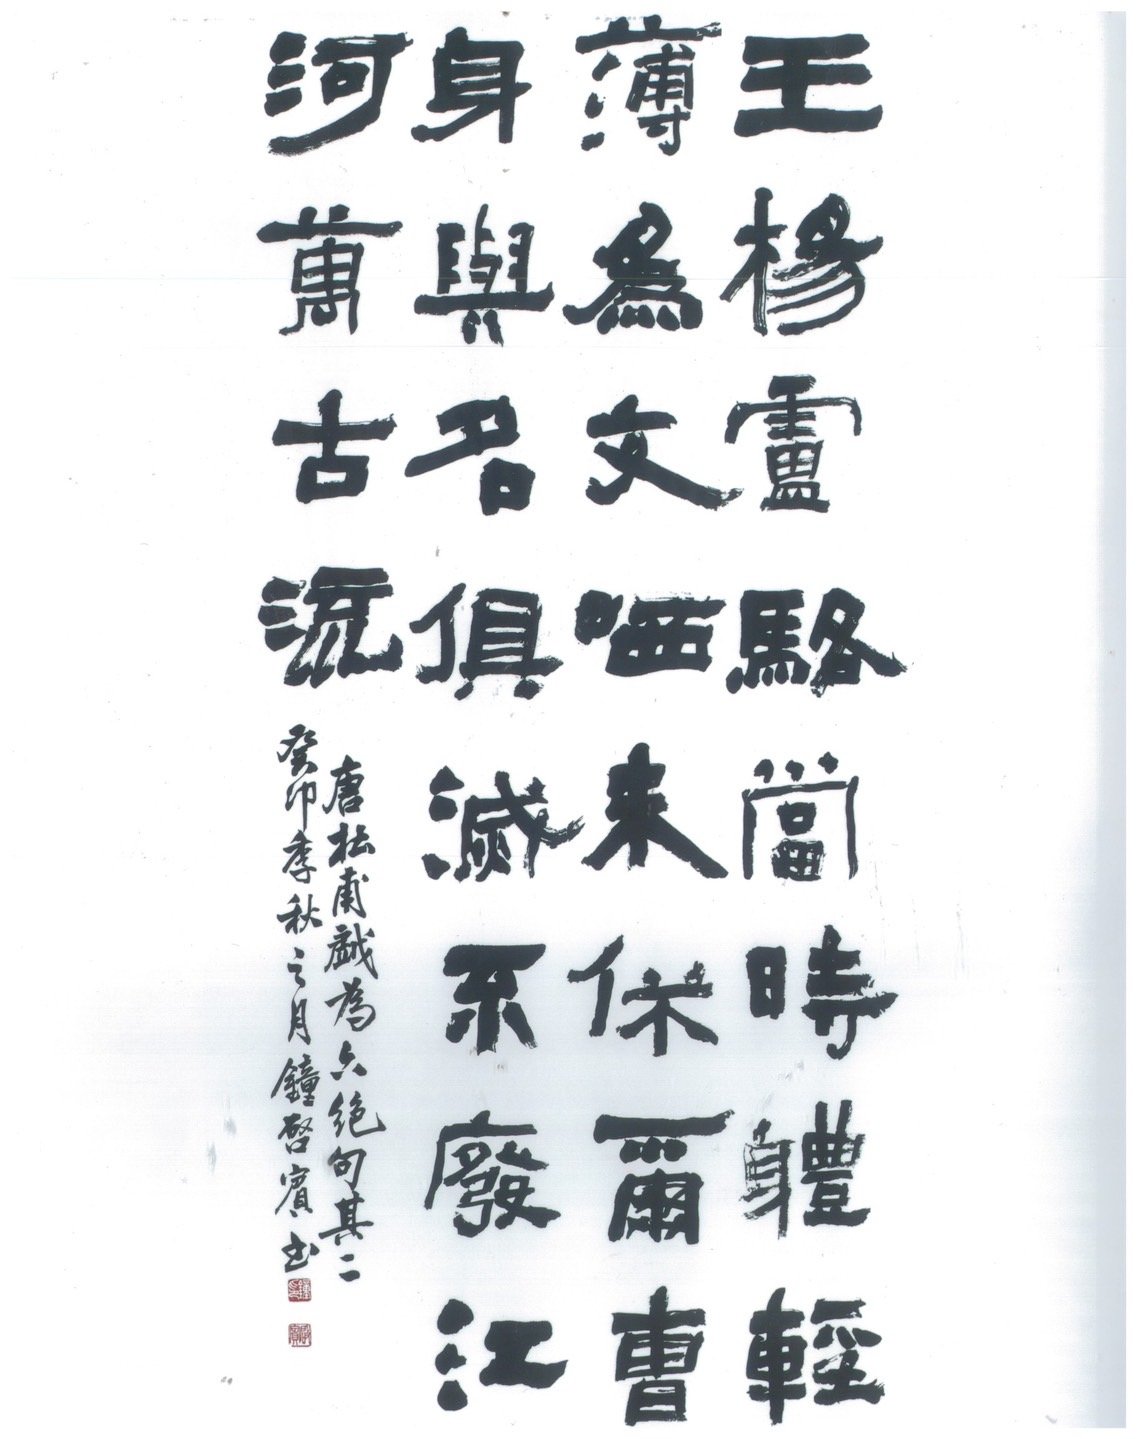 王楊盧駱當時軆輕
薄為文哂未休爾曹
身與名俱滅不廢江
河萬古流
唐杜甫戲為六絕句其二
癸卯季秋之月鐘啓賓书